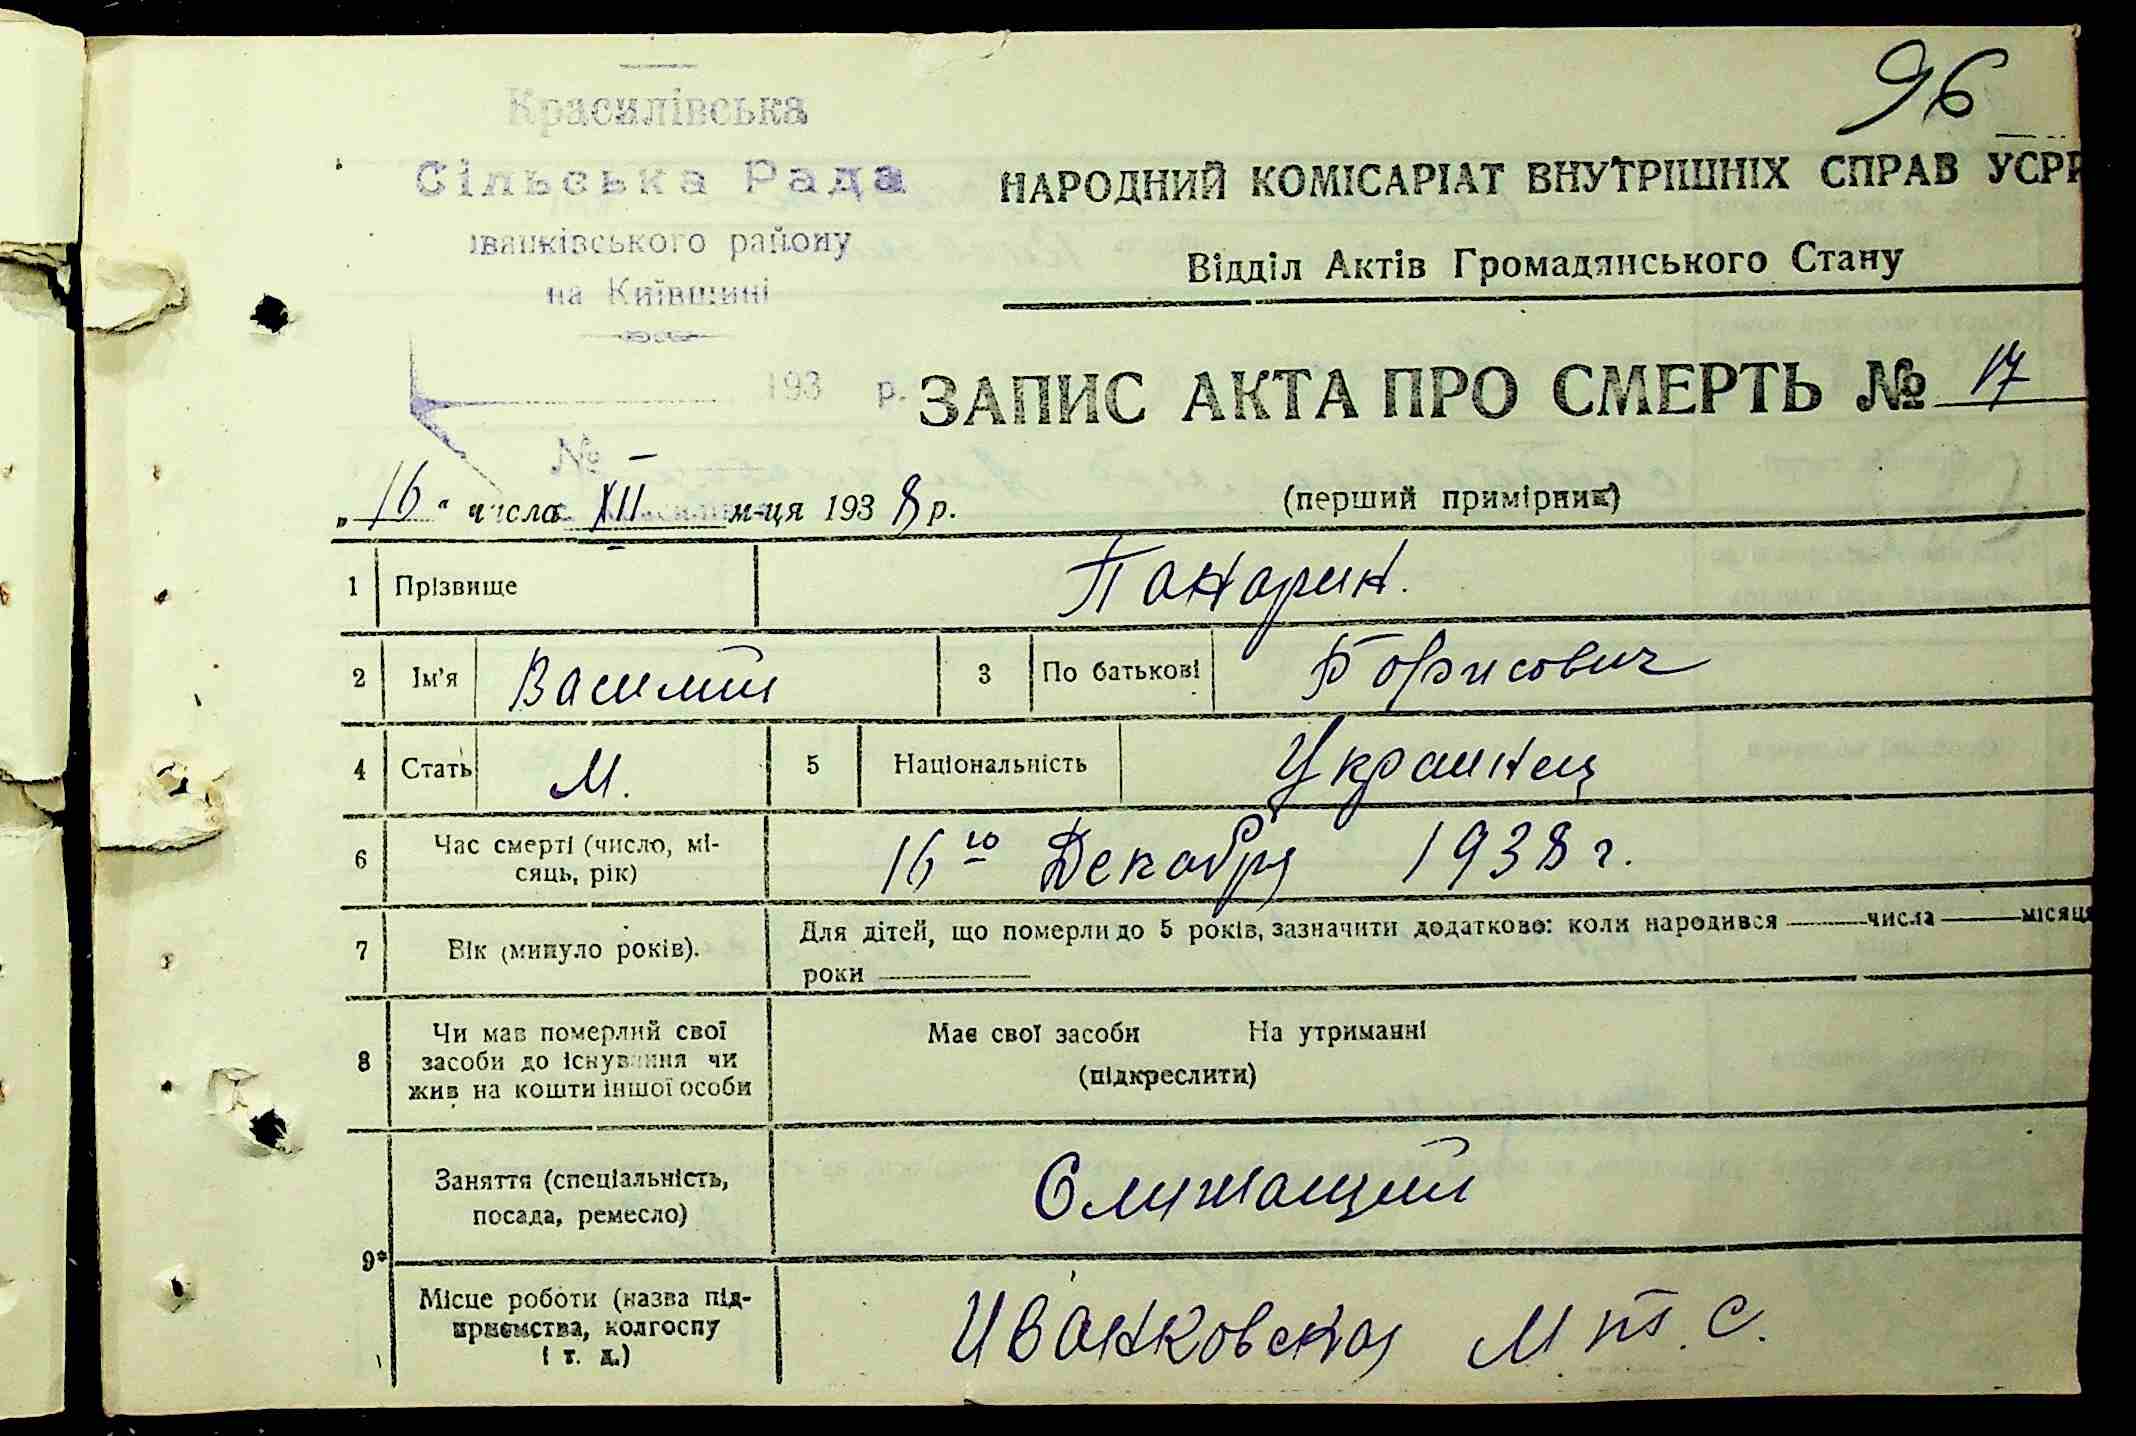 96
Красилівська
Сільська Рада
Іванківського району
на Київщині
193 р.
№
НАРОДНИЙ КОМІСАРІАТ ВНУТРІШНІХ СПРАВ УСРР
Відділ Актів Громадянського Стану
ЗАПИС АКТА ПРО СМЕРТЬ № 17
„16“ числа XII м-ця 1938 р.
(перший примірник)
1 Прізвище Панарин.
2 Ім'я Василий 3 По батькові Борисович
4 Стать М. 5 Національність Украинец
6 Час смерті (число, мі-
сяць, рік) 16го Декабря 1938 г.
7 Вік (минуло років). Для дітей, що померли до 5 років, зазначити додатково: коли народився ——числа——місяця
роки ———
8 Чи мав померлий свої
засоби до існування чи
жив на кошти іншої особи
Має свої засоби На утриманні
(підкреслити)
9* Заняття (спеціальність,
посада, ремесло) Служащий
Місце роботи (назва під-
приємства, колгоспу
і т. д.) Иванковская М.т.с.